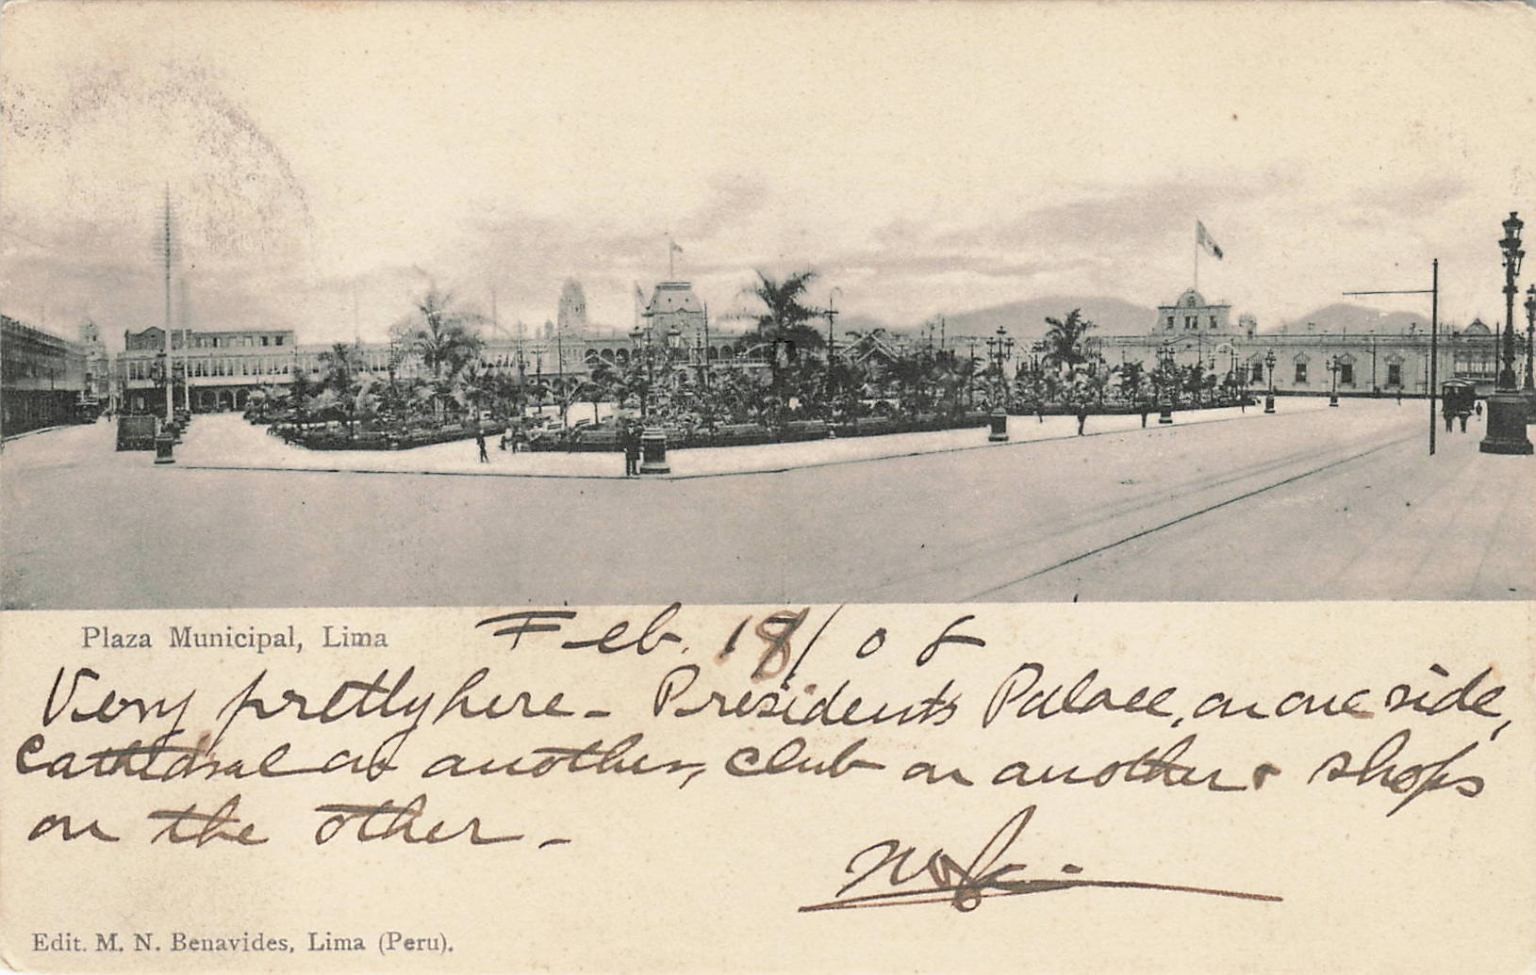 Plaza Municipal, Lima
Feb. 18/08
Very pretty here - Presidents Palace, on one side,
Cathedral on another, club on another & shops
on the other -
Edit. M. N. Benavides, Lima (Peru).